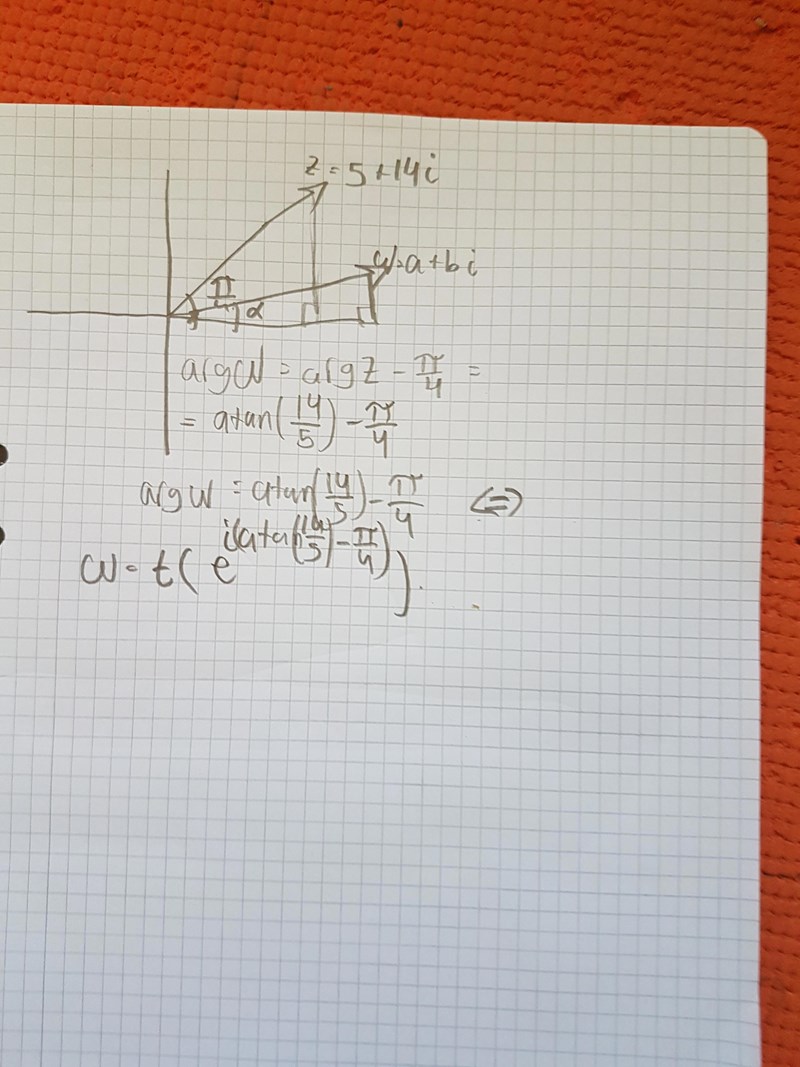 z = 5+14i
w=a+bi
π/4 α
arg w = arg z - π/4 =
= atan(14/5) - π/4
arg w = atan(14/5) - π/4 ⇔
w = t(e^i(atan(14/5) - π/4)).